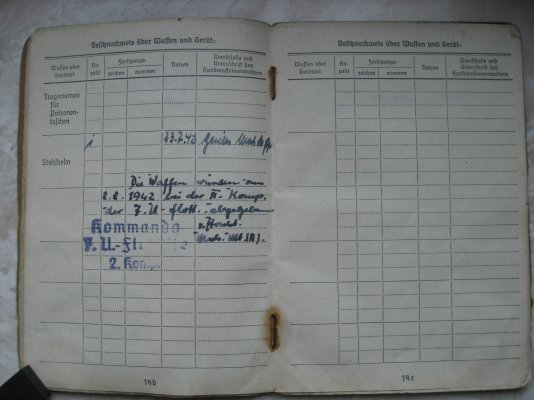 Besitznachweis über Waffen und Gerät:
Waffen oder Geräteart
An-zahl
Fertigungs-
zeichen
nummer
Datum
Dienststelle und Unterschrift des Handwaffenverwalters
Trageriemen
für
Patronen-
taschen
1 23.7.42
Stahlhelm
Die Waffen wurden am
2.8.1942 bei der II. Komp.
der 7. U-Flott. abgegeben
Kommando
7. U-Fl
2. Komp.
14b
Besitznachweis über Waffen und Gerät:
Waffen oder Geräteart
An-zahl
Fertigungs-
zeichen
nummer
Datum
Dienststelle und Unterschrift des Handwaffenverwalters
14c